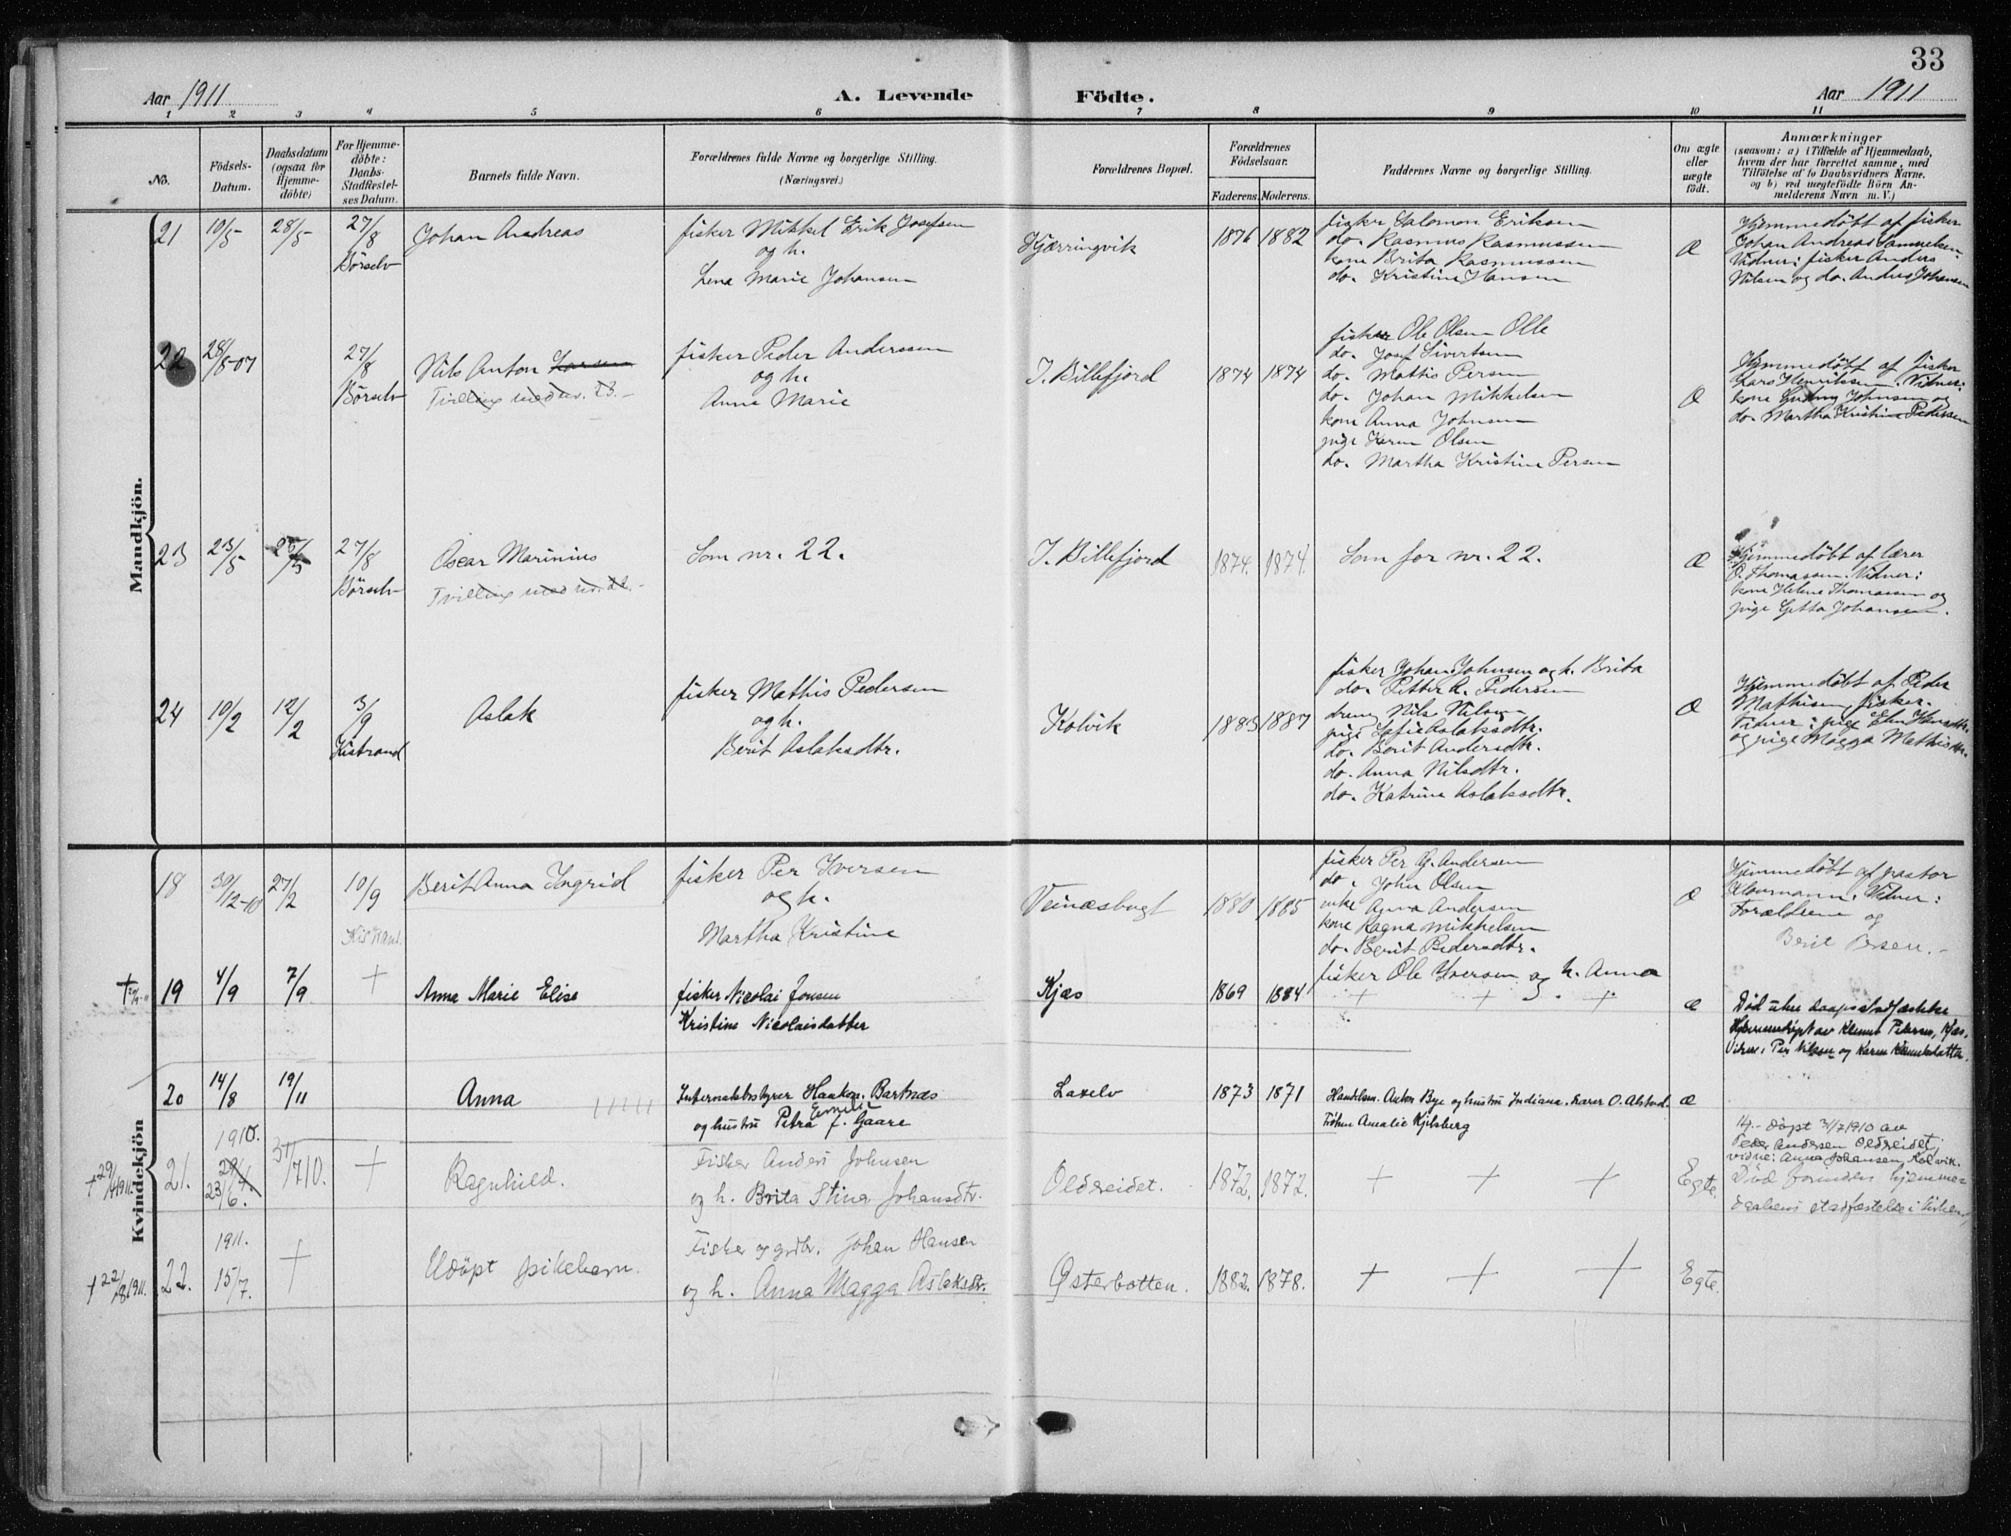 33
Aar 1911
A. Levende Födte.
Aar 1911
1 2 3 4 5 6 7 8 9 10 11
No.
Födsels-Datum.
Daabsdatum (ogsaa for Hjemme-döbte)
For Hjemme-döbte: Daabs-Stadfæstel-ses Datum.
Barnets fulde Navn.
Forældrenes fulde Navne og borgerlige Stilling.
(Næringsvei.)
Forældrenes Bopæl.
Forældrenes Födselsaar.
Faderens. Moderens.
Faddernes Navne og borgerlige Stilling.
Om ægte eller uægte födt.
Anmærkninger
(saasom: a) i Tilfælde af Hjemmedaab,
hvem der har forrettet samme, med
Tilföielse af to Daabsvidners Navne.
og b) ved uægtefödte Börn An-
melderens Navn m. V.)
Mandkjön.
21 10/5 28/5 27/8 Børselv
Johan Andreas
fisker Mikkel Erik Josefsen
og h.
Lena Marie Johansen
Kjærringvik
1876 1882
fisker Salomon Eriksen
do. Rasmus Rasmussen
kone Brita Rasmussen
do. Kristine Hansen
Æ
Hjemmedöbt af fisker
Johan Andreas Samuelsen.
Vidner: fisker Anders
Nilsen og do. Anders Johansen
22 28/8-07 27/8 Børselv
Nils Anton Larsen
Tvilling med nr. 23.
fisker Peder Anderssen
og h.
Anne Marie
I. Billefjord
1874 1874
fisker Ole Olsen Olle
do. Josef Sivertsen
do. Mattis Persen
do. Johan Mikkelsen
kone Anna Johnsen
pige Karen Olsen
do. Martha Kristine Persen
Æ
Hjemmedöbt af fisker
Lars Henriksen. Vidner:
kone Johnsen og
do. Martha Kristine Pedersen
23 23/5 27/8 Børselv
Oscar Marinius
Tvilling med nr. 22.
Som nr. 22.
I. Billefjord
1874. 1874.
Som for nr. 22.
Æ
Hjemmedöbt af lærer
O. Thomassen. Vidner:
kone Helene Thomassen og
pige Getta Johansen.
24 10/2 12/2 3/9 Kistrand
Aslak
fisker Mathis Pedersen
og h.
Berit Aslaksdtr.
Kolvik
1883 1887
fisker Johan Johnsen og h. Brita
do. Petter A. Pedersen
dreng Nils Nilsen
pige Sofie Aslaksdtr.
do. Berit Andersdtr.
do. Anna Nilsdtr.
do. Katrine Aslaksdtr.
Æ
Hjemmedöbt af Peder
Mathisen, fisker.
Vidner: pige Elen
og pige Magga Mathisdtr.
Kvindekjön
18 30/12-10 27/2 10/9 Kistrand.
Berit Anna Ingrid
fisker Per Iversen
og h.
Martha Kristine
Veinæsbugt
1880 1885
fisker Per G. Andersen
do. John Olsen
enke Anna Andersen
kone Ragna Mikkelsen
do. Berit Pedersdtr.
fisker Ole Iversen og h. Anna
Æ
Hjemmedöbt af pastor
Vidner:
Forældrene og
Berit Persen.
† 19 4/9 7/9 +
Anne Marie Elise
fisker Nicolai Jonsen
Kristine Nicolaisdatter
Kjæs
1869 1884
+ + +
æ
Død uten daapsstadfæstelse
Hjemmedøpt av Klemet Petersen, Kjæs.
Vidner: Per Nilsen og Karen Klemetsdatter.
20 14/8 19/11
Anna
Internatbestyrer Haakon Bartnæs
og hustru Petra Emelie f. Gaare
Laxelv
1873 1871
Handelsm. Anton Bye og hustru Indiana. Lærer O. Alstad.
Frøken Amalie Kjelsberg
æ
†29/4 1911. 21. 1910. 23/6. 31/7 10. +
Ragnhild.
Fisker Anders Johnsen
og h. Brita Stina Johansdtr.
Oldereidet.
1872. 1872.
+ + +
Egte.
Hj. døpt 31/7 1910 av
Peder Andersen Oldereidet;
vidne: Anna Johansen, Kolvik.
Död forinden hjemme-
daabens stadfæstelse i kirken.
†22/8 1911. 22. 1911. 15/7. +
Udöpt pikebarn.
Fisker og grdbr. Johan Hansen
og h. Anna Magga Aslaksdtr.
Østerbotten.
1882. 1878.
+ + +
Egte.